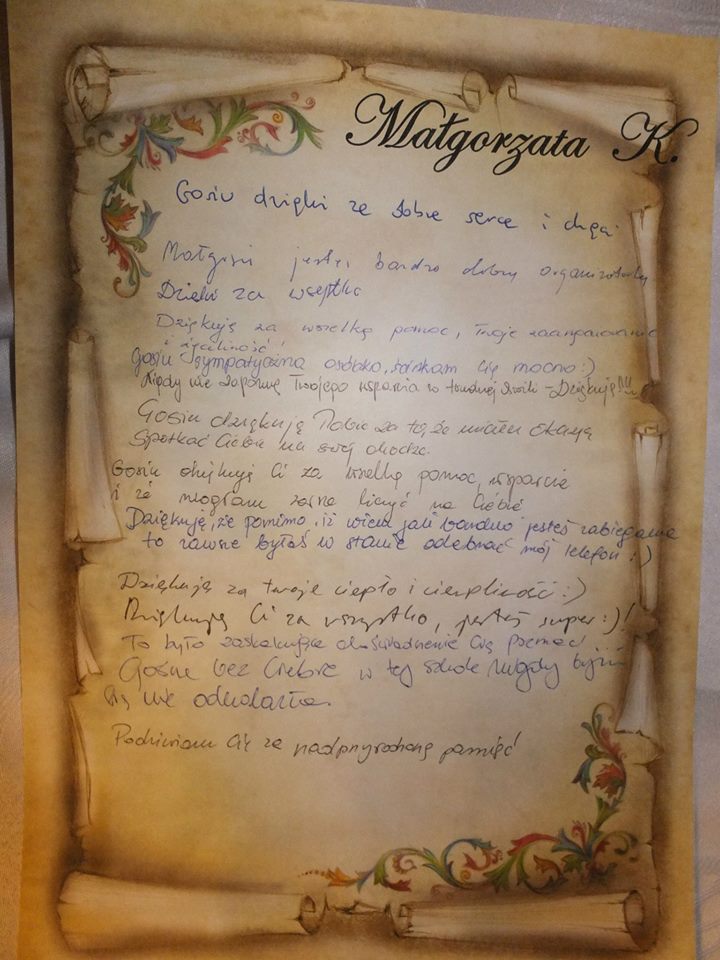 Małgorzata K.
Gosiu dzięki za dobre serce i chęci
Małgosiu jesteś bardzo dobrym organizatorką
Dzięki za wszystko
Dziękuję za wszelką pomoc, Twoje zaangażowanie
i życzliwość!
Gosiu sympatyczna osóbko, ściskam Cię mocno :)
Nigdy nie zapomnę Twojego wsparcia w trudnej chwili - Dziękuję!!!
Gosiu dziękuję Tobie za to, że miałam okazję
spotkać Ciebie na swej drodze.
Gosiu dziękuję Ci za wszelką pomoc, wsparcie
i że mogłam zawsze liczyć na Ciebie
Dziękuję, że pomimo, iż wiem jak bardzo jesteś zabiegana
to zawsze byłaś w stanie odebrać mój telefon :)
Dziękuję za twoje ciepło i cierpliwość :)
Dziękuję Ci za wszystko, jesteś super :)!
To było zaskakujące doświadczenie Cię poznać!
Gosiu bez Ciebie w tej szkole nigdy bym
się nie odnalazła.
Podziwiam Cię za nadprzyrodzoną pamięć